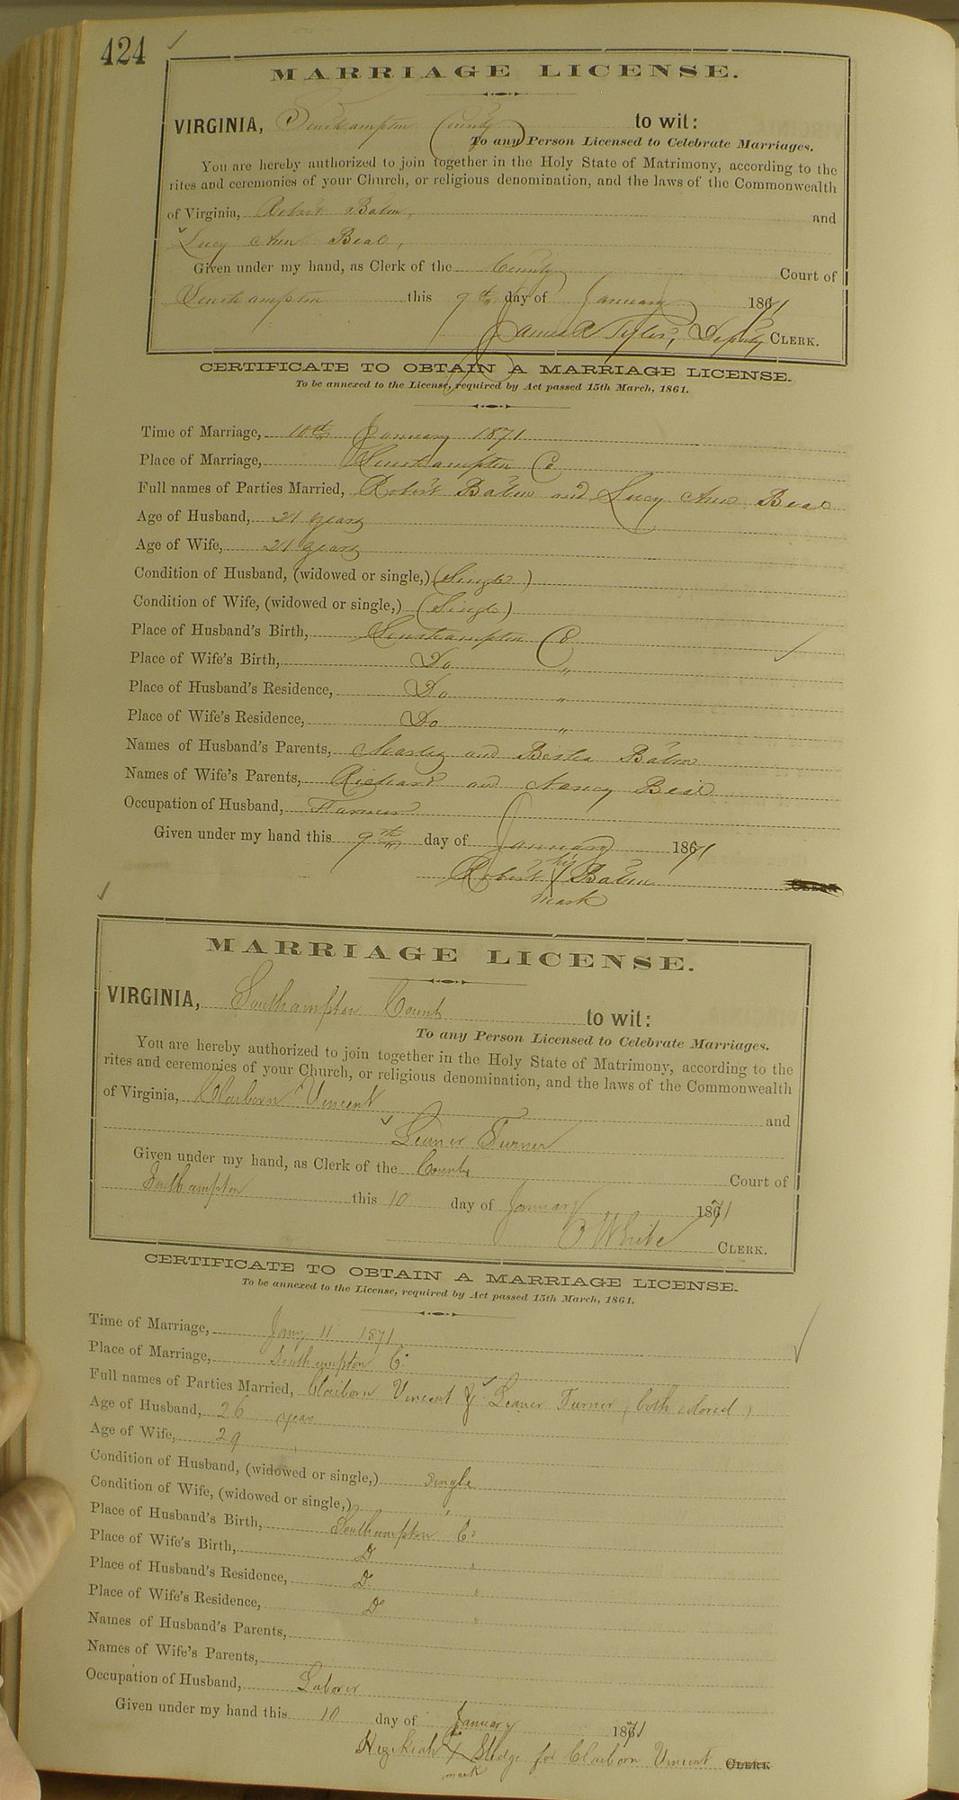 424
MARRIAGE LICENSE.
VIRGINIA, Southampton County to wit:
To any Person Licensed to Celebrate Marriages.
You are hereby authorized to join together in the Holy State of Matrimony, according to the
rites and ceremonies of your Church, or religious denomination, and the laws of the Commonwealth
of Virginia, Robert and
Lucy Ann Beal,
Given under my hand, as Clerk of the County Court of
Southampton this 9th day of January 1871
James R Tyler, Deputy CLERK.
CERTIFICATE TO OBTAIN A MARRIAGE LICENSE.
To be annexed to the License, required by Act passed 15th March, 1861.
Time of Marriage, 10th January 1871
Place of Marriage, Southampton Co
Full names of Parties Married, Robert and Lucy Ann Beal
Age of Husband, 21 years
Age of Wife, 21 years
Condition of Husband, (widowed or single,) (Single)
Condition of Wife, (widowed or single,) (Single)
Place of Husband's Birth, Southampton Co
Place of Wife's Birth, Do "
Place of Husband's Residence, Do "
Place of Wife's Residence, Do "
Names of Husband's Parents, and
Names of Wife's Parents, Richard and Nancy Beal
Occupation of Husband, Farmer
Given under my hand this 9th day of January 1871
his
Robert X CLERK
mark
MARRIAGE LICENSE.
VIRGINIA, Southampton County to wit:
To any Person Licensed to Celebrate Marriages.
You are hereby authorized to join together in the Holy State of Matrimony, according to the
rites and ceremonies of your Church, or religious denomination, and the laws of the Commonwealth
of Virginia, Claiborn Vincent and
Leaner Turner
Given under my hand, as Clerk of the County Court of
Southampton this 10 day of January 1871
White CLERK.
CERTIFICATE TO OBTAIN A MARRIAGE LICENSE.
To be annexed to the License, required by Act passed 15th March, 1861.
Time of Marriage, Jany 11 1871
Place of Marriage, Southampton Co
Full names of Parties Married, Claiborn Vincent & Leaner Turner (both colored)
Age of Husband, 26 years
Age of Wife, 29 "
Condition of Husband, (widowed or single,) single
Condition of Wife, (widowed or single,) "
Place of Husband's Birth, Southampton Co
Place of Wife's Birth, Do "
Place of Husband's Residence, Do "
Place of Wife's Residence, Do "
Names of Husband's Parents,
Names of Wife's Parents,
Occupation of Husband, Laborer
Given under my hand this 10 day of January 1871
Hezekiah X Sledge for Claiborn Vincent CLERK
mark